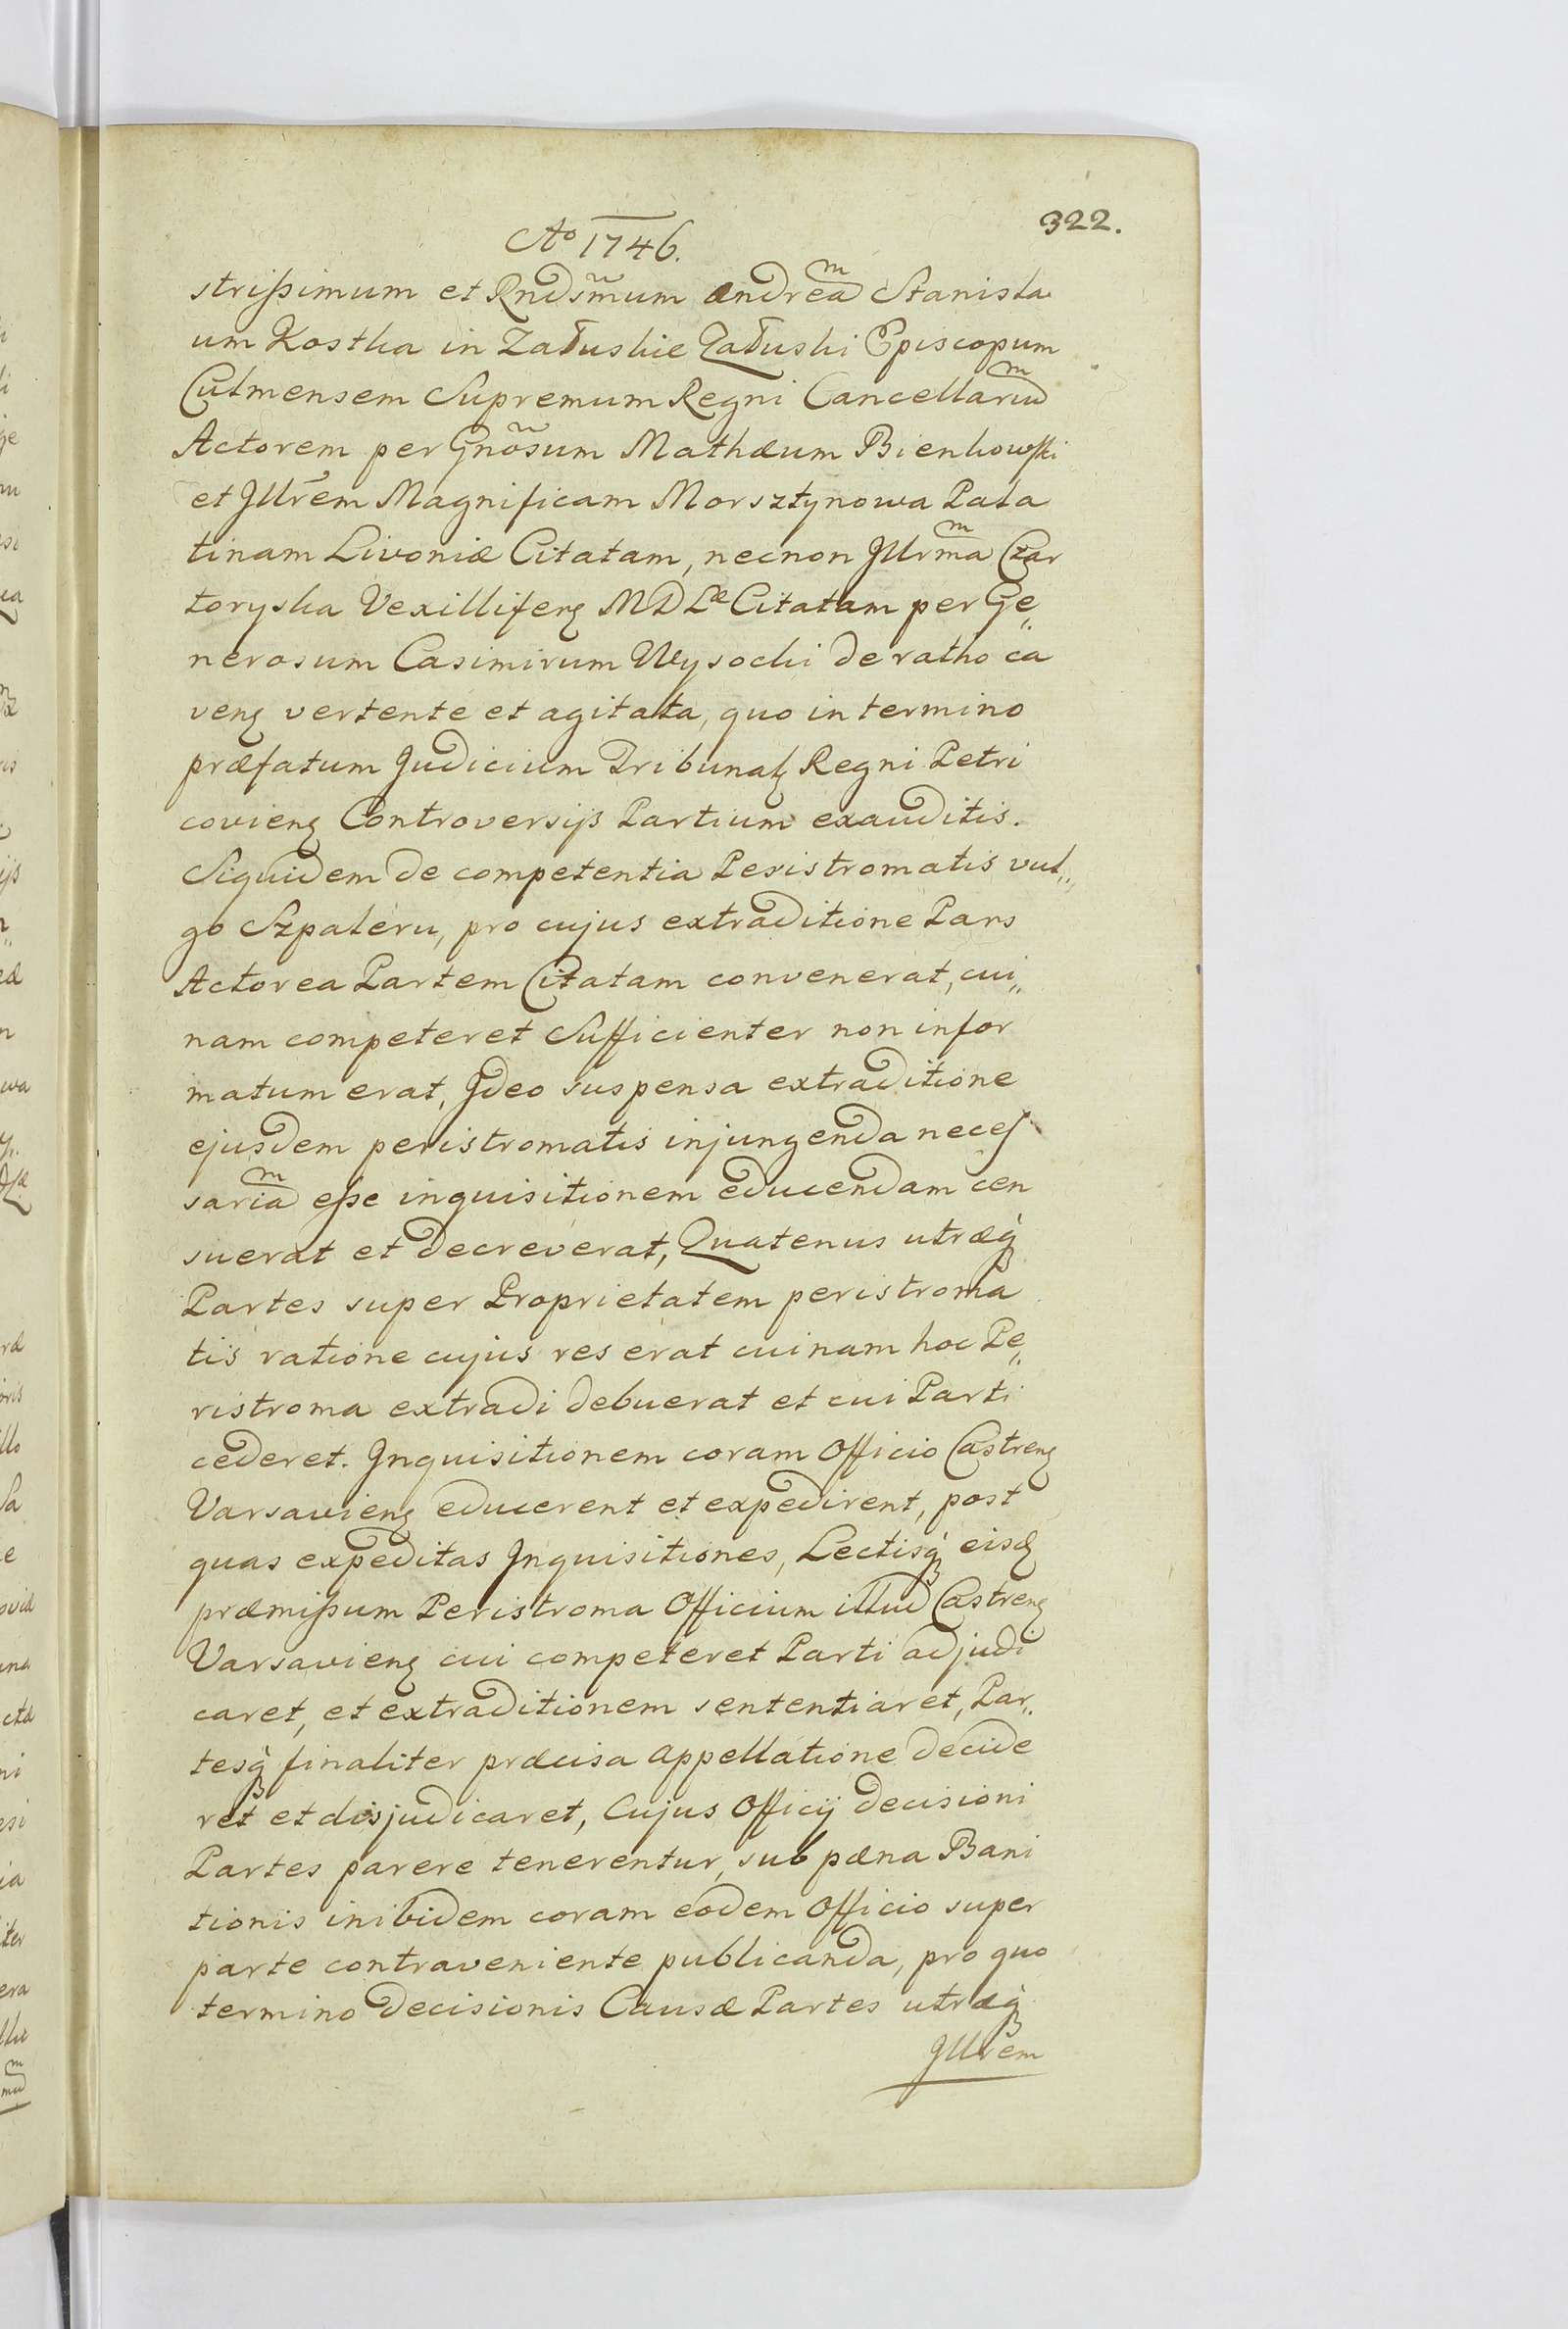 322.
Aº 1746.
strissimum et Rndsm̃um Andrea͠m Stanisla
um Kostka in Załuskie Załuski Episcopum
Culmensem Supremum Regni Cancellariu͠m
Actorem per Gnõsum Mathæum Bienkowski
et Jllrem Magnificam Morsztynowa Pala
tinam Livoniæ Citatam, necnon Jllrma͠m Czar
toryska Vexilliferę MDLæ Citatam per Ge„
nerosum Casimirum Wysocki de ratho ca
venę vertente et agitata, quo in termino
præfatum Judicium Tribunalę Regni Petri
covienę Controversijs Partium exauditis.
Siquidem de competentia Peristromatis vul„
go Szpaleru, pro cujus extraditione Pars
Actorea Partem Citatam convenerat, cui„
nam competeret Sufficienter non infor
matum erat, Jdeo suspensa extraditione
ejusdem peristromatis injungenda neces
saria͠m esse inquisitionem educendam cen
suerat et decreverat, Quatenus utræq́
Partes super Proprietatem peristroma
tis ratione cujus res erat cuinam hoc Pe„
ristroma extradi debuerat et cui Parti
cederet. Jnquisitionem coram Officio Castrenę
Varsavienę educerent et expedirent, post
quas expeditas Jnquisitiones, Lectisq́ eisdę
præmissum Peristroma Officium illud Castrenę
Varsavienę cui competeret Parti adjudi
caret, et extraditionem sententiaret, Par„
tesq́ finaliter præcisa appellatione decide
ret et disjudicaret, Cujus Officij decisioni
Partes parere tenerentur, sub pæna Bani
tionis inibidem coram eodem Officio super
parte contraveniente publicanda, pro quo
termino decisionis Causæ Partes utræq́
Jllrem